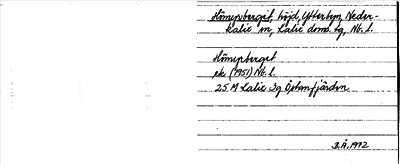 Hömypberget, höjd, Ytterbyn, Neder-
kalix sn, Kalix doms. bg, Nb. l.
Hömypberget
ek (1951) Nb. l.
25 M Kalix Sg Östanfjärden
B.Å. 1972